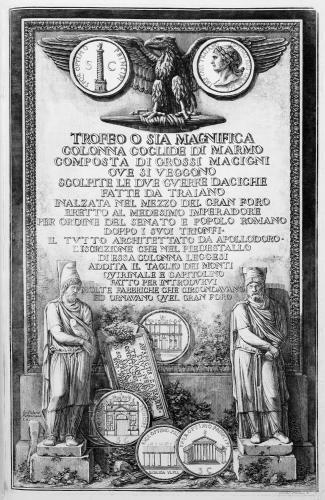 S C
TROFEO O SIA MAGNIFICA
COLONNA COCLIDE DI MARMO
COMPOSTA DI GROSSI MACIGNI
OVE SI VEGGONO
SCOLPITE LE DUE GUERRE DACICHE
FATTE DA TRAIANO
INALZATA NEL MEZZO DEL GRAN FORO
ERETTO AL MEDESIMO IMPERADORE
PER ORDINE DEL SENATO E POPOLO ROMANO
DOPPO I SUOI TRIONFI
IL TUTTO ARCHITETTATO DA APOLLODORO
L'ISCRIZIONE CHE NEL PIEDESTALLO
DI ESSA COLONNA LEGGESI
ADDITA IL TAGLIO DEI MONTI
QUIRINALE E CAPITOLINO
FATTO PER INTRODURVI
MOLTE FABBRICHE CHE CIRCONDAVANO
ED ORNAVANO QUEL GRAN FORO
S C